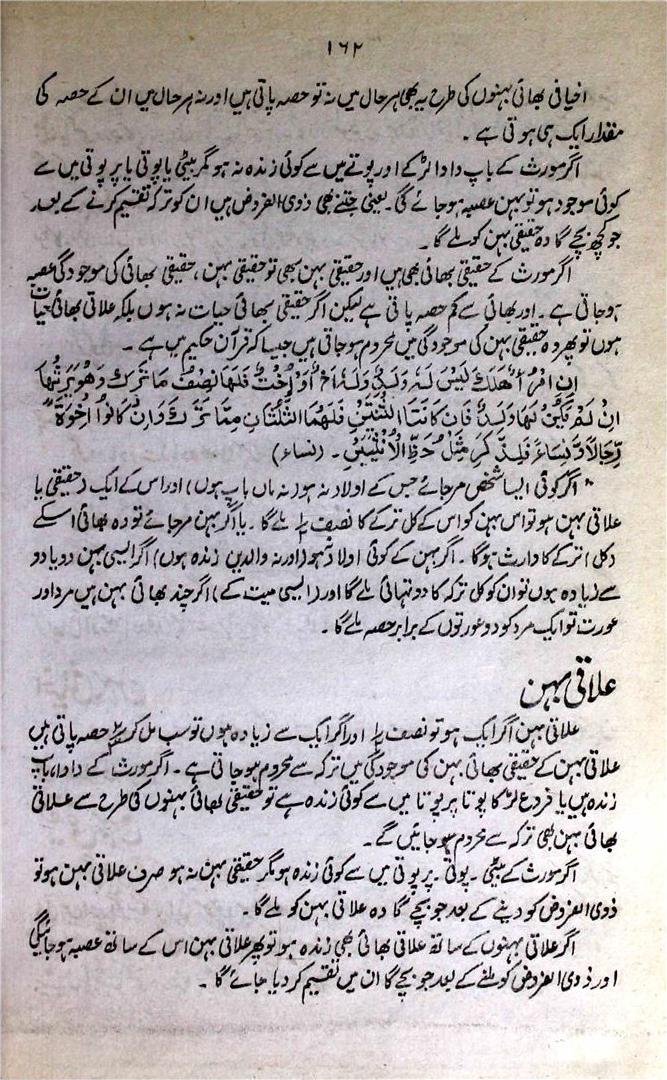 ۱۶۲
اخیافی بھائی بہنوں کی طرح یہ بھی ہر حال میں نہ تو حصہ پاتی ہیں اور نہ ہر حال میں ان کے حصہ کی
مقدار ایک ہی ہوتی ہے ۔
اگر مورث کے باپ دادا لڑکے اور پوتے میں سے کوئی زندہ نہ ہو مگر بیٹی یا پوتی یا پرپوتی میں سے
کوئی موجود ہو تو بہن عصبہ ہو جائے گی ۔ یعنی جتنے بھی ذوی الفروض ہیں ان کو ترکہ تقسیم کرنے کے بعد
جو کچھ بچے گا وہ حقیقی بہن کو ملے گا ۔
اگر مورث کے حقیقی بھائی بھی ہیں اور حقیقی بہن بھی تو حقیقی بہن ، حقیقی بھائی کی موجودگی عصبہ
ہو جاتی ہے ۔ اور بھائی سے کم حصہ پاتی ہے لیکن اگر حقیقی بھائی حیات نہ ہوں بلکہ علاتی بھائی حیات
ہوں تو پھر وہ حقیقی بہن کی موجودگی میں محروم ہو جاتی ہیں جیسا کہ قرآن حکیم میں ہے ۔
اِنِ امْرُؤٌا هَلَكَ لَيْسَ لَهٗ وَلَدٌ وَّلَهٗ اُخْتٌ فَلَهَا نِصْفُ مَا تَرَكَ وَهُوَ يَرِثُهَا
اِنْ لَّمْ يَكُنْ لَّهَا وَلَدٌ فَاِنْ كَانَتَا اثْنَتَيْنِ فَلَهُمَا الثُّلُثَانِ مِمَّا تَرَكَ وَاِنْ كَانُوْا اِخْوَةً
رِّجَالًا وَّنِسَاءً فَلِلذَّكَرِ مِثْلُ حَظِّ الْاُنْثَيَيْنِ ۔ (نساء)
" اگر کوئی ایسا شخص مر جائے جس کے اولاد نہ ہو (نہ ماں باپ ہوں) اور اس کے ایک (حقیقی یا
علاتی بہن ہو تو اس بہن کو اس کے کل ترکے کا نصف ملے گا ۔ یا اگر بہن مر جائے تو وہ بھائی اسکے
(کل) ترکے کا وارث ہوگا ۔ اگر بہن کے کوئی اولاد نہ ہو (اور نہ والدین زندہ ہوں) اگر ایسی بہن دو یا دو
سے زیادہ ہوں تو ان کو کل ترکہ کا دو تہائی ملے گا اور (ایسی میت کے) اگر چند بھائی بہن ہیں مرد اور
عورت تو ایک مرد کو دو عورتوں کے برابر حصہ ملے گا ۔
علاتی بہن
علاتی بہن اگر ایک ہو تو نصف اور اگر ایک سے زیادہ ہوں تو سب مل کر حصہ پاتی ہیں
علاتی بہن کے حقیقی بھائی بہن کی موجودگی میں ترکہ سے محروم ہو جاتی ہے ۔ اگر مورث کے دادا، باپ
زندہ ہیں یا فروع لڑکا پوتا پرپوتا میں سے کوئی زندہ ہے تو حقیقی بھائی بہنوں کی طرح سے علاتی
بھائی بہن بھی ترکہ سے محروم ہو جائیں گے ۔
اگر مورث کے بیٹی ۔ پوتی ۔ پرپوتی میں سے کوئی زندہ ہو مگر حقیقی بہن نہ ہو صرف علاتی بہن ہو تو
ذوی الفروض کو دینے کے بعد جو بچے گا وہ علاتی بہن کو ملے گا ۔
اگر علاتی بہنوں کے ساتھ علاتی بھائی بھی زندہ ہو تو پھر علاتی بہن اس کے ساتھ عصبہ ہو جائیگی
اور ذوی الفروض کو ملنے کے بعد جو بچے گا ان میں تقسیم کر دیا جائے گا ۔